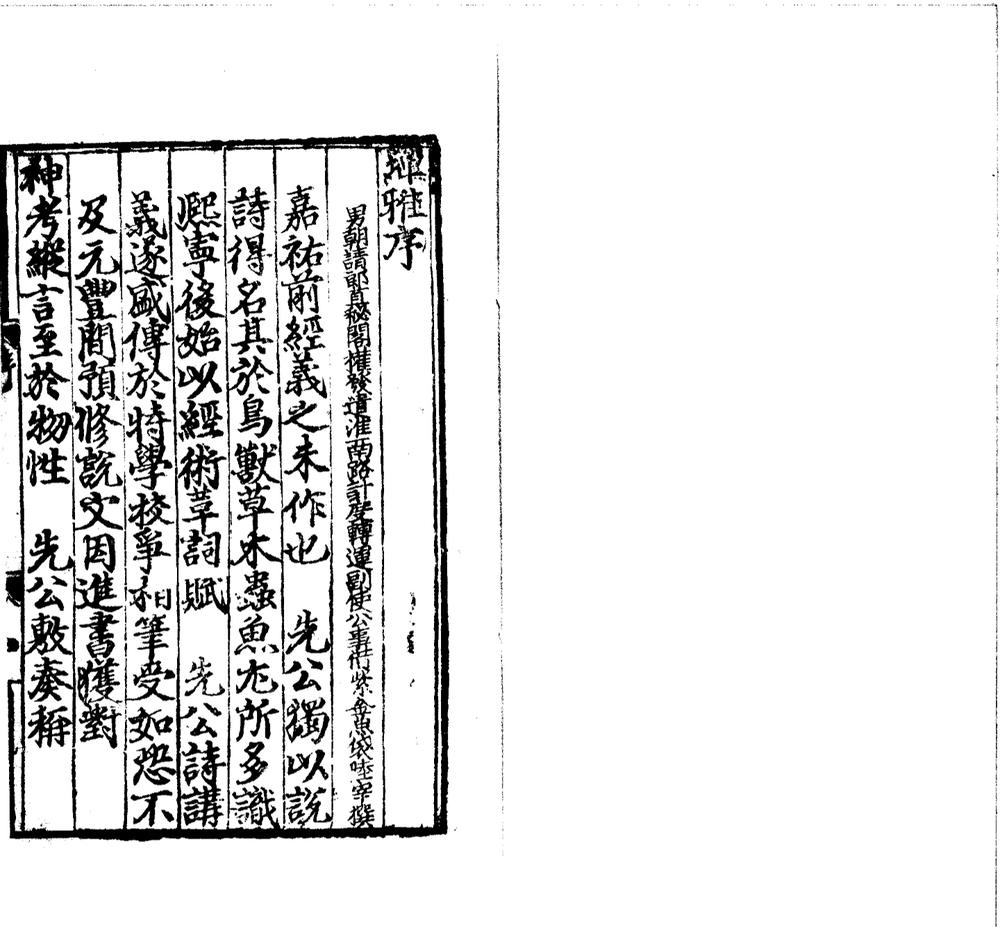 埤雅序
男朝請郎直秘閣權發遣淮南路計度轉運副使公事借紫金魚袋陸宰撰
嘉祐前經義之未作也　先公獨以說
詩得名其於鳥獸草木蟲魚尤所多識
熙寧後始以經術革詞賦　先公詩講
義遂盛傳於時學校爭相筆受如恐不
及元豐間預修說文因進書獲對
神考縱言至於物性　先公敷奏稱